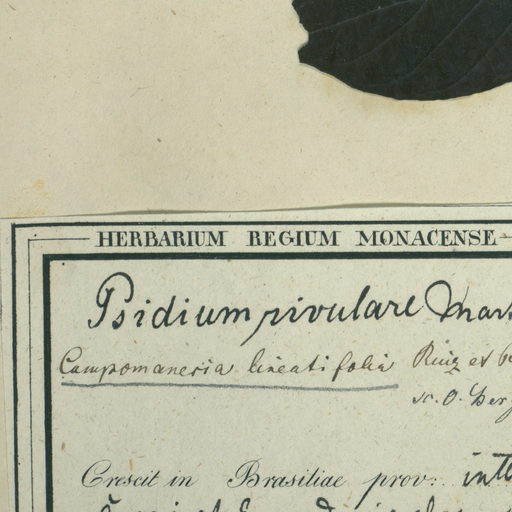 HERBARIUM REGIUM MONACENSE
Psidium rivulare Mart
Campomanesia lineatifolia Ruiz et
sc. O. Berg
Crescit in Brasiliae prov: